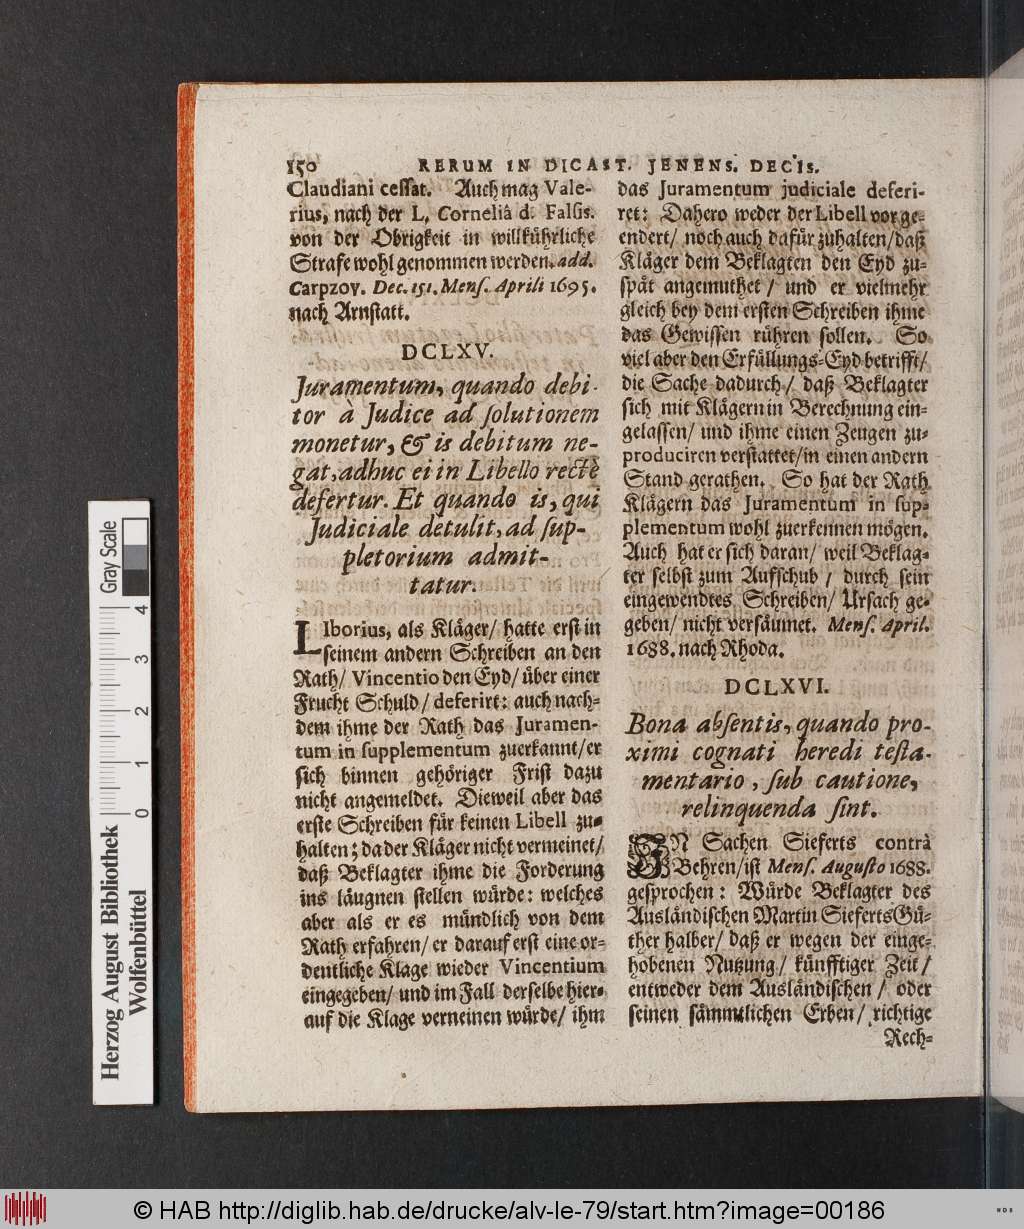 150 RERUM IN DICAST. JENENS. DECIS.
Claudiani cessat. Auch mag Vale-
rius, nach der L. Corneliâ d. Falsis.
von der Obrigkeit in willkührliche
Strafe wohl genommen werden. add.
Carpzov. Dec. 151. Mens. Aprili 1695.
nach Arnstatt.
DCLXV.
Juramentum, quando debi-
tor à Judice ad solutionem
monetur, & is debitum ne-
gat, adhuc ei in Libello rectè
defertur. Et quando is, qui
Judiciale detulit, ad sup-
pletorium admit-
tatur.
LIborius, als Kläger/ hatte erst in
seinem andern Schreiben an den
Rath/ Vincentio den Eyd/ über einer
Frucht Schuld/ deferirt: auch nach-
dem ihme der Rath das Juramen-
tum in supplementum zuerkannt/ er
sich binnen gehöriger Frist dazu
nicht angemeldet. Dieweil aber das
erste Schreiben für keinen Libell zu-
halten; da der Kläger nicht vermeinet/
daß Beklagter ihme die Forderung
ins läugnen stellen würde: welches
aber als er es mündlich von dem
Rath erfahren/ er darauf erst eine or-
dentliche Klage wieder Vincentium
eingegeben/ und im Fall derselbe hier-
auf die Klage verneinen würde/ ihm
das Juramentum judiciale deferi-
ret: Dahero weder der Libell vor ge-
endert/ noch auch dafür zuhalten/ daß
Kläger dem Beklagten den Eyd zu-
spät angemuthet/ und er vielmehr
gleich bey dem ersten Schreiben ihme
das Gewissen rühren sollen. So
viel aber den Erfüllungs-Eyd betrifft/
die Sache dadurch/ daß Beklagter
sich mit Klägern in Berechnung ein-
gelassen/ und ihme einen Zeugen zu-
produciren verstattet/ in einen andern
Stand gerathen. So hat der Rath
Klägern das Juramentum in sup-
plementum wohl zuerkennen mögen.
Auch hat er sich daran/ weil Beklag-
ter selbst zum Aufschub/ durch sein
eingewendtes Schreiben/ Ursach ge-
geben/ nicht versäumet. Mens. April.
1688. nach Rhoda.
DCLXVI.
Bona absentis, quando pro-
ximi cognati heredi testa-
mentario, sub cautione,
relinquenda sint.
IN Sachen Sieferts contrà
Behren/ ist Mens. Augusto 1688.
gesprochen: Würde Beklagter des
Ausländischen Martin Sieferts Gü-
ther halber/ daß er wegen der einge-
hobenen Nutzung/ künfftiger Zeit/
entweder dem Ausländischen/ oder
seinen sämmtlichen Erben/ richtige
Rech-
Herzog August Bibliothek
Wolfenbüttel
0 1 2 3 4
Gray Scale
© HAB http://diglib.hab.de/drucke/alv-le-79/start.htm?image=00186